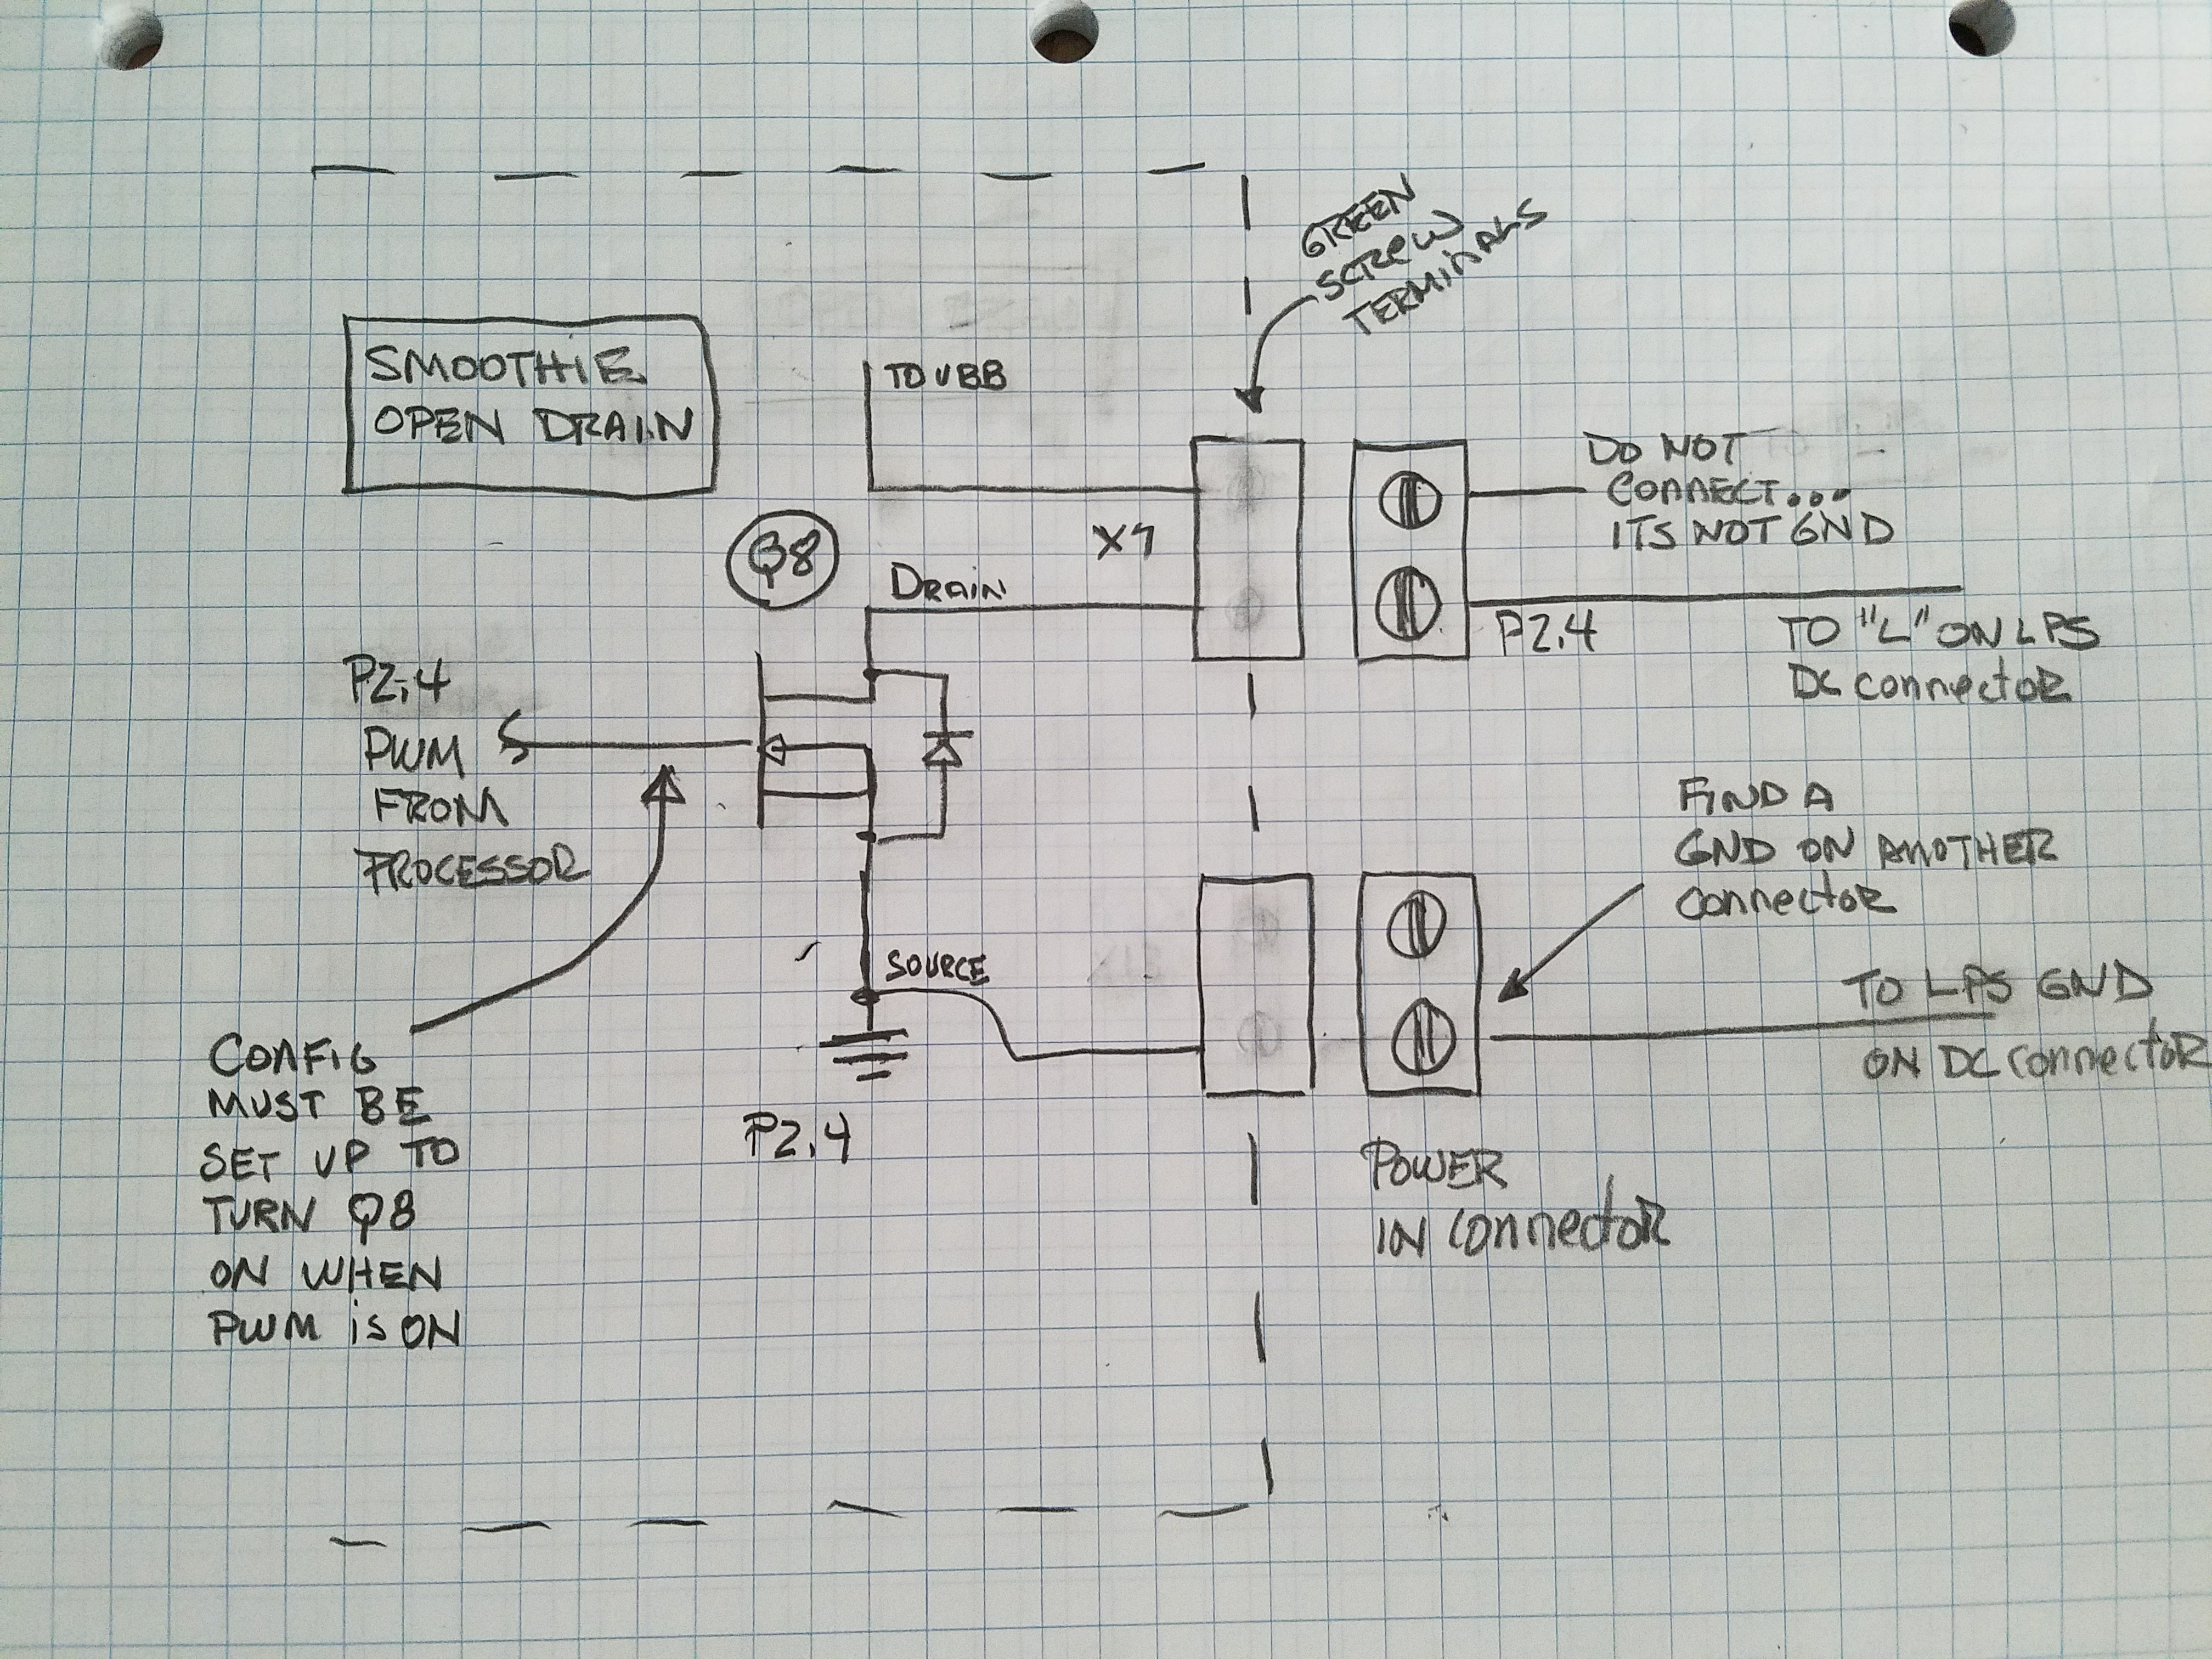 GREEN
SCREW
TERMINALS
SMOOTHIE
OPEN DRAIN
TO VBB
DO NOT
CONNECT...
ITS NOT GND
Q8
DRAIN
P2.4
TO "L" ON LPS
DC CONNECTOR
P2.4
PWM
FROM
PROCESSOR
FIND A
GND ON ANOTHER
CONNECTOR
SOURCE
TO LPS GND
ON DC CONNECTOR
CONFIG
MUST BE
SET UP TO
TURN Q8
ON WHEN
PWM is ON
P2.4
POWER
IN CONNECTOR